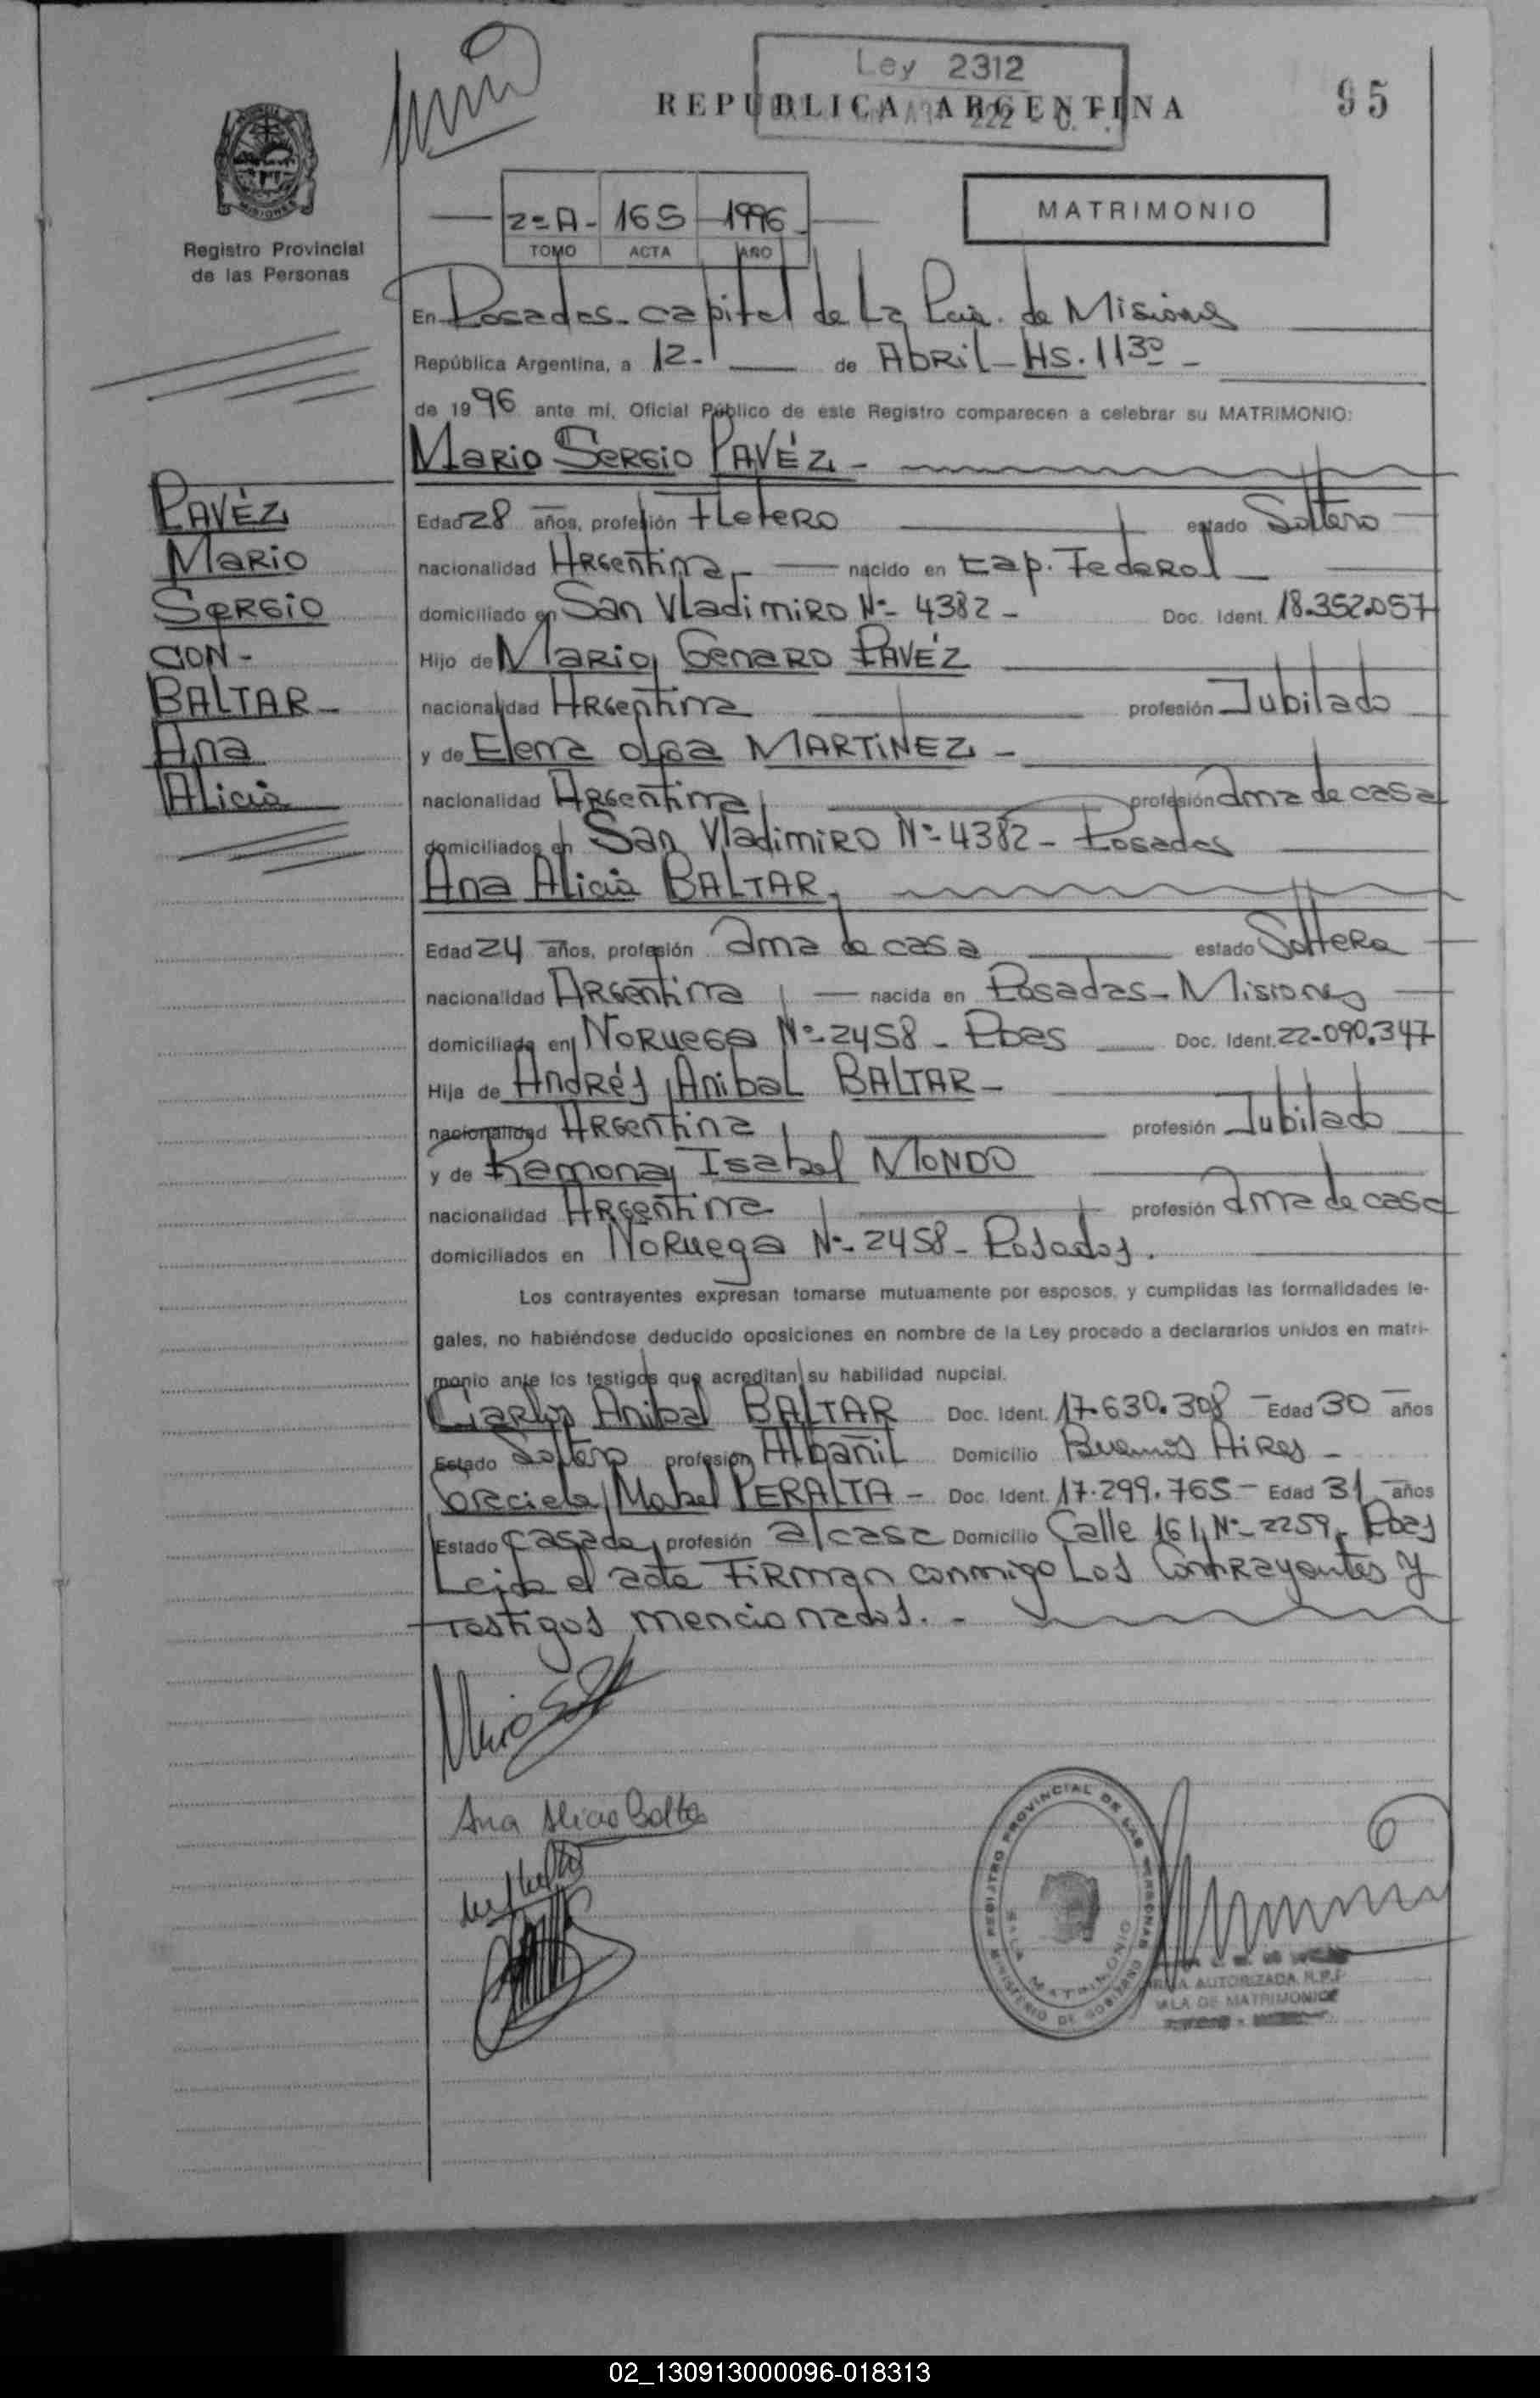 Ley 2312
REPUBLICA ARGENTINA
95
MISIONES
Registro Provincial
de las Personas
2=A- 165 1996
TOMO ACTA AÑO
MATRIMONIO
En Posadas-capital de La Pcia. de Misiones
República Argentina, a 12.- de Abril-HS. 11 30 -
de 1996 ante mí, Oficial Público de este Registro comparecen a celebrar su MATRIMONIO:
Mario Sergio PAVÉZ -
PAVÉZ
Mario
Sergio
CON-
BALTAR-
Ana
Alicia
Edad 28 años, profesión Fletero estado Soltero
nacionalidad Argentina- nacido en Cap. Federal
domiciliado en San Vladimiro Nº- 4382 - Doc. Ident. 18.352.057
Hijo de Mario Genaro PAVÉZ
nacionalidad Argentina profesión Jubilado
y de Elena olga MARTINEZ -
nacionalidad Argentina profesión ama de casa
domiciliados en San Vladimiro Nº-4382- Posadas
Ana Alicia BALTAR-
Edad 24 años, profesión ama de casa estado Soltera
nacionalidad Argentina - nacida en Posadas-Misiones
domiciliada en Noruega Nº-2458 - Pdas Doc. Ident. 22-090.347
Hija de Andrés Anibal BALTAR-
nacionalidad Argentina profesión Jubilado
y de Ramona Isabel MONDO
nacionalidad Argentina profesión ama de casa
domiciliados en Noruega Nº-2458- Posadas.
Los contrayentes expresan tomarse mutuamente por esposos, y cumplidas las formalidades le-
gales, no habiéndose deducido oposiciones en nombre de la Ley procedo a declararlos unidos en matri-
monio ante los testigos que acreditan su habilidad nupcial.
Carlos Anibal BALTAR Doc. Ident. 17.630.308 - Edad 30 años
Estado Soltero profesión Albañil Domicilio Buenos Aires -
Graciela Mabel PERALTA - Doc. Ident. 17.299.765- Edad 31 años
Estado casada profesión a/casa Domicilio Calle 161, Nº-2259, Pdas
Leida el acta Firman conmigo Los Contrayentes y
Testigos mencionados. -
Ana Alicia Balta
REGISTRO PROVINCIAL DE LAS PERSONAS
MINISTERIO DE GOBIERNO
SALA MATRIMONIO
AUTORIZADA R.P.P.
SALA DE MATRIMONIOS
02_130913000096-018313